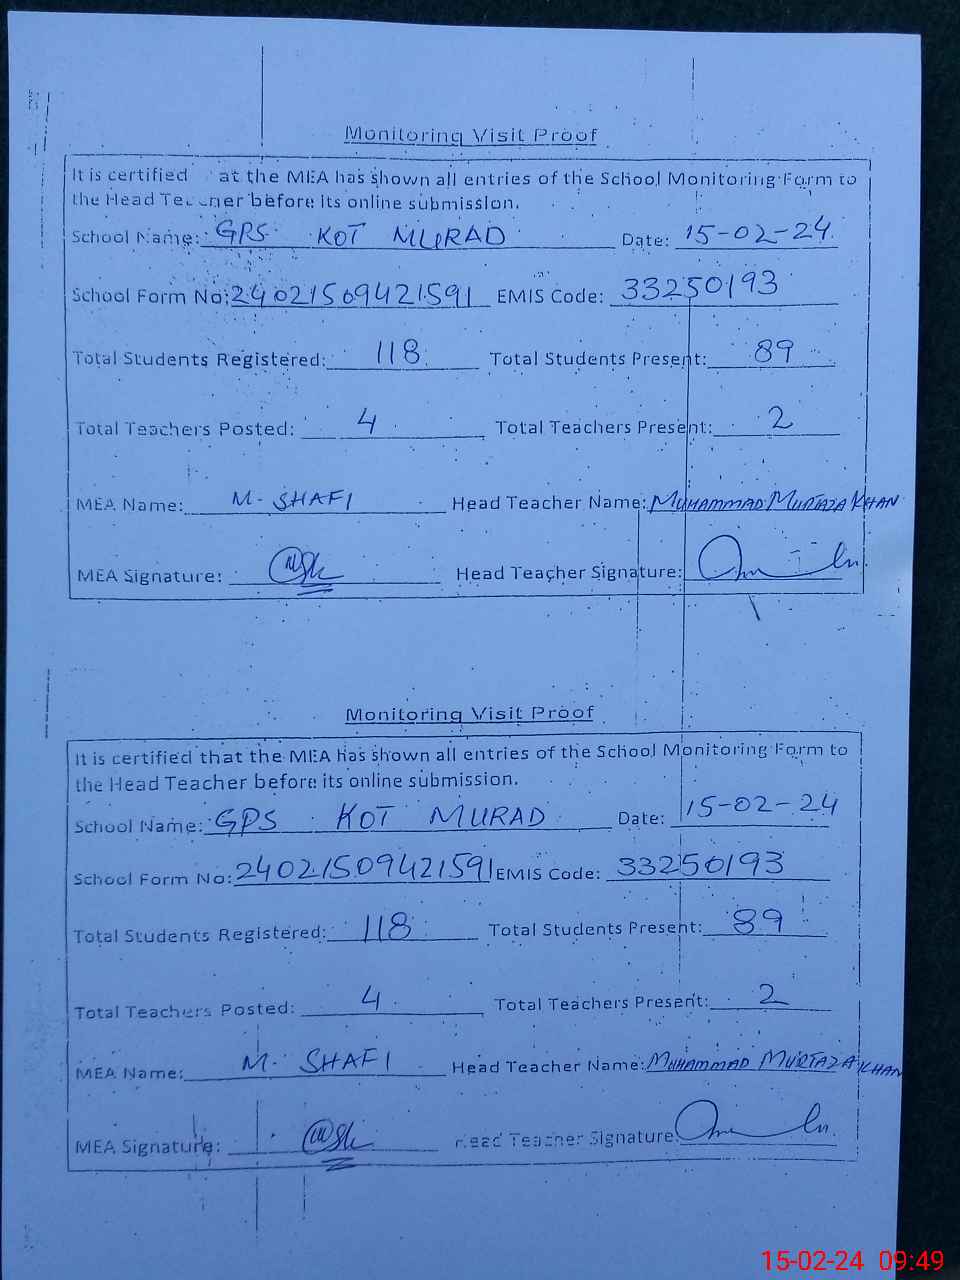 Monitoring Visit Proof
It is certified at the MEA has shown all entries of the School Monitoring Form to
the Head before its online submission.
School Name: GPS KOT MURAD Date: 15-02-24
School Form No: 24021509421591 EMIS Code: 33250193
Total Students Registered: 118 Total Students Present: 89
Total Teachers Posted: 4 Total Teachers Present: 2
MEA Name: M. SHAFI Head Teacher Name: MUHAMMAD MURTAZA KHAN
MEA Signature: Head Teacher Signature:
Monitoring Visit Proof
It is certified that the MEA has shown all entries of the School Monitoring Form to
the Head Teacher before its online submission.
School Name: GPS KOT MURAD Date: 15-02-24
School Form No: 24021509421591 EMIS Code: 33250193
Total Students Registered: 118 Total Students Present: 89
Total Teachers Posted: 4 Total Teachers Present: 2
MEA Name: M. SHAFI Head Teacher Name: MUHAMMAD MURTAZA KHAN
MEA Signature: Head Teacher Signature:
15-02-24 09:49